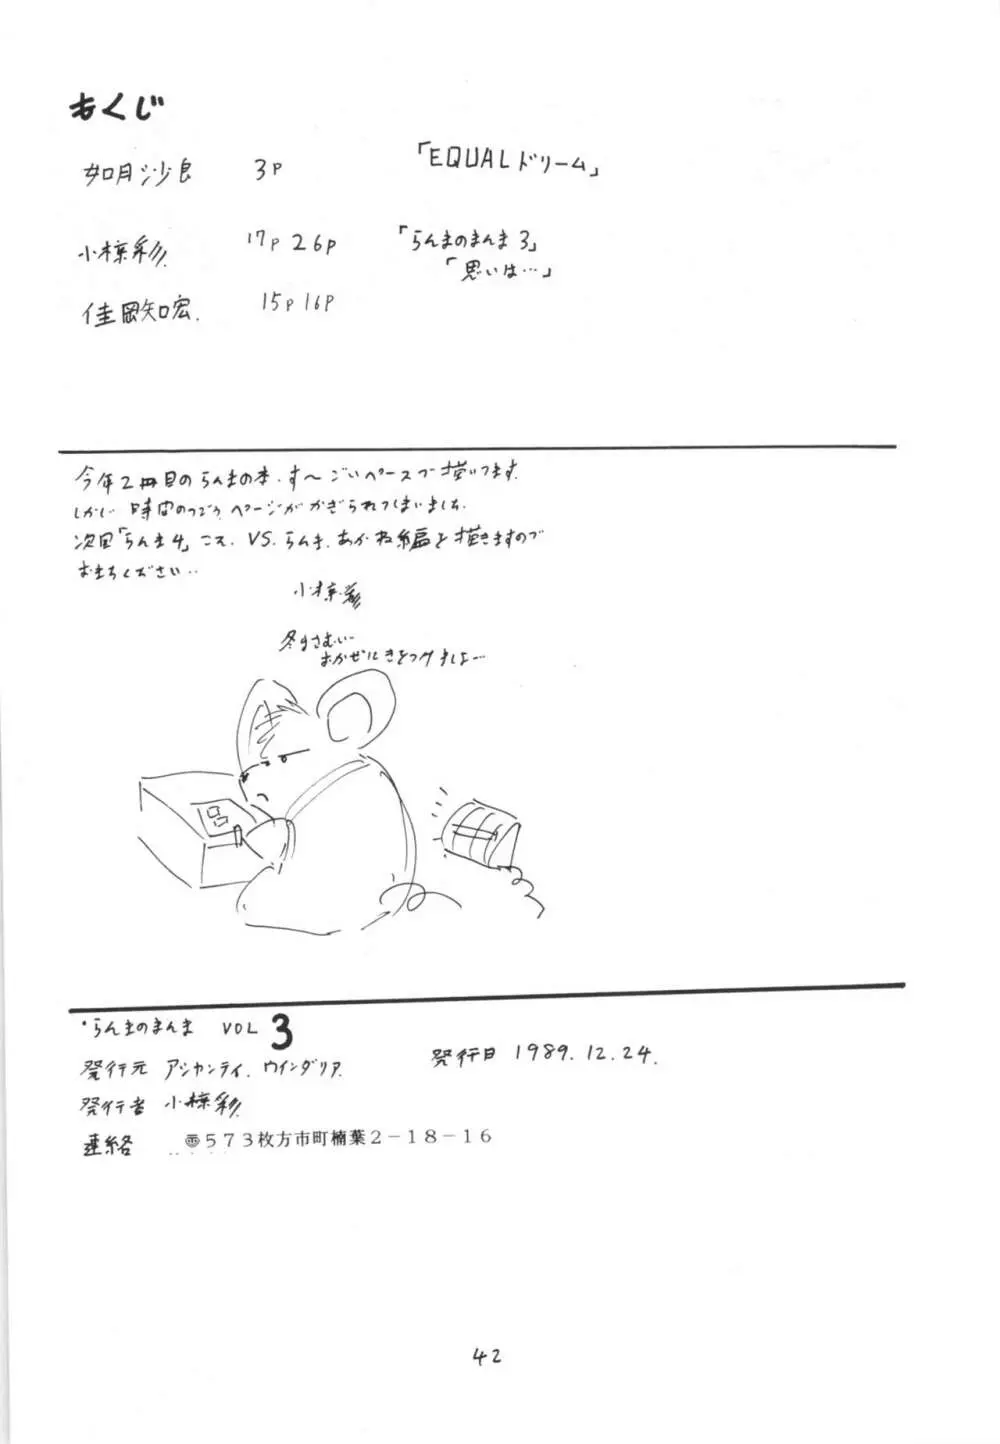 もくじ
如月沙良 3P 「EQUALドリーム」
小椋彩 17P 26P 「らんまのまんま3」
「思いは…」
佳岡知宏. 15P 16P
今年2冊目のらんまの本.す〜ごいペースで描いてます.
しかし時間のつごう、ページがかぎられてしまいました.
次回「らんま4」こそ、VS.らんま.あかね編を描きますので
おまちください..
小椋彩
冬はさむい…
おかぜにきをつけましょ…
・らんまのまんま VOL 3
発行元 アシャンティ.ウインダリア. 発行日 1989.12.24.
発行者 小椋彩.
連絡 〠573枚方市町楠葉2-18-16
42